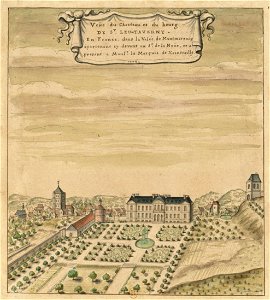 Veüe du Chasteau et du bourg
DE St. LEU-TAVERNY
En France, dans la Valée de Montmorency
apartenant cy devant au Sr. de la Noüe, et a
present a Monsr. le Marquis de